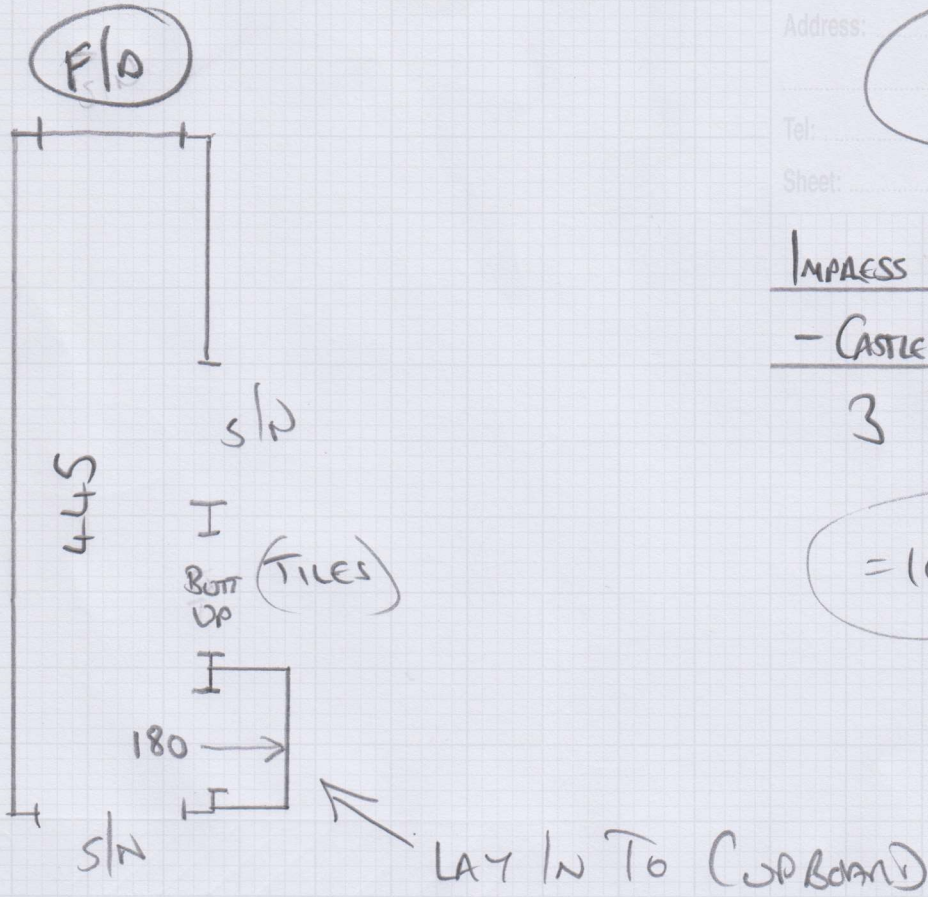 F/D
Address:
Tel:
Sheet:
IMPRESS
- CASTLE
3
S/N
445
BUTT
UP
(TILES)
180
S/N
LAY IN TO CUPBOARD